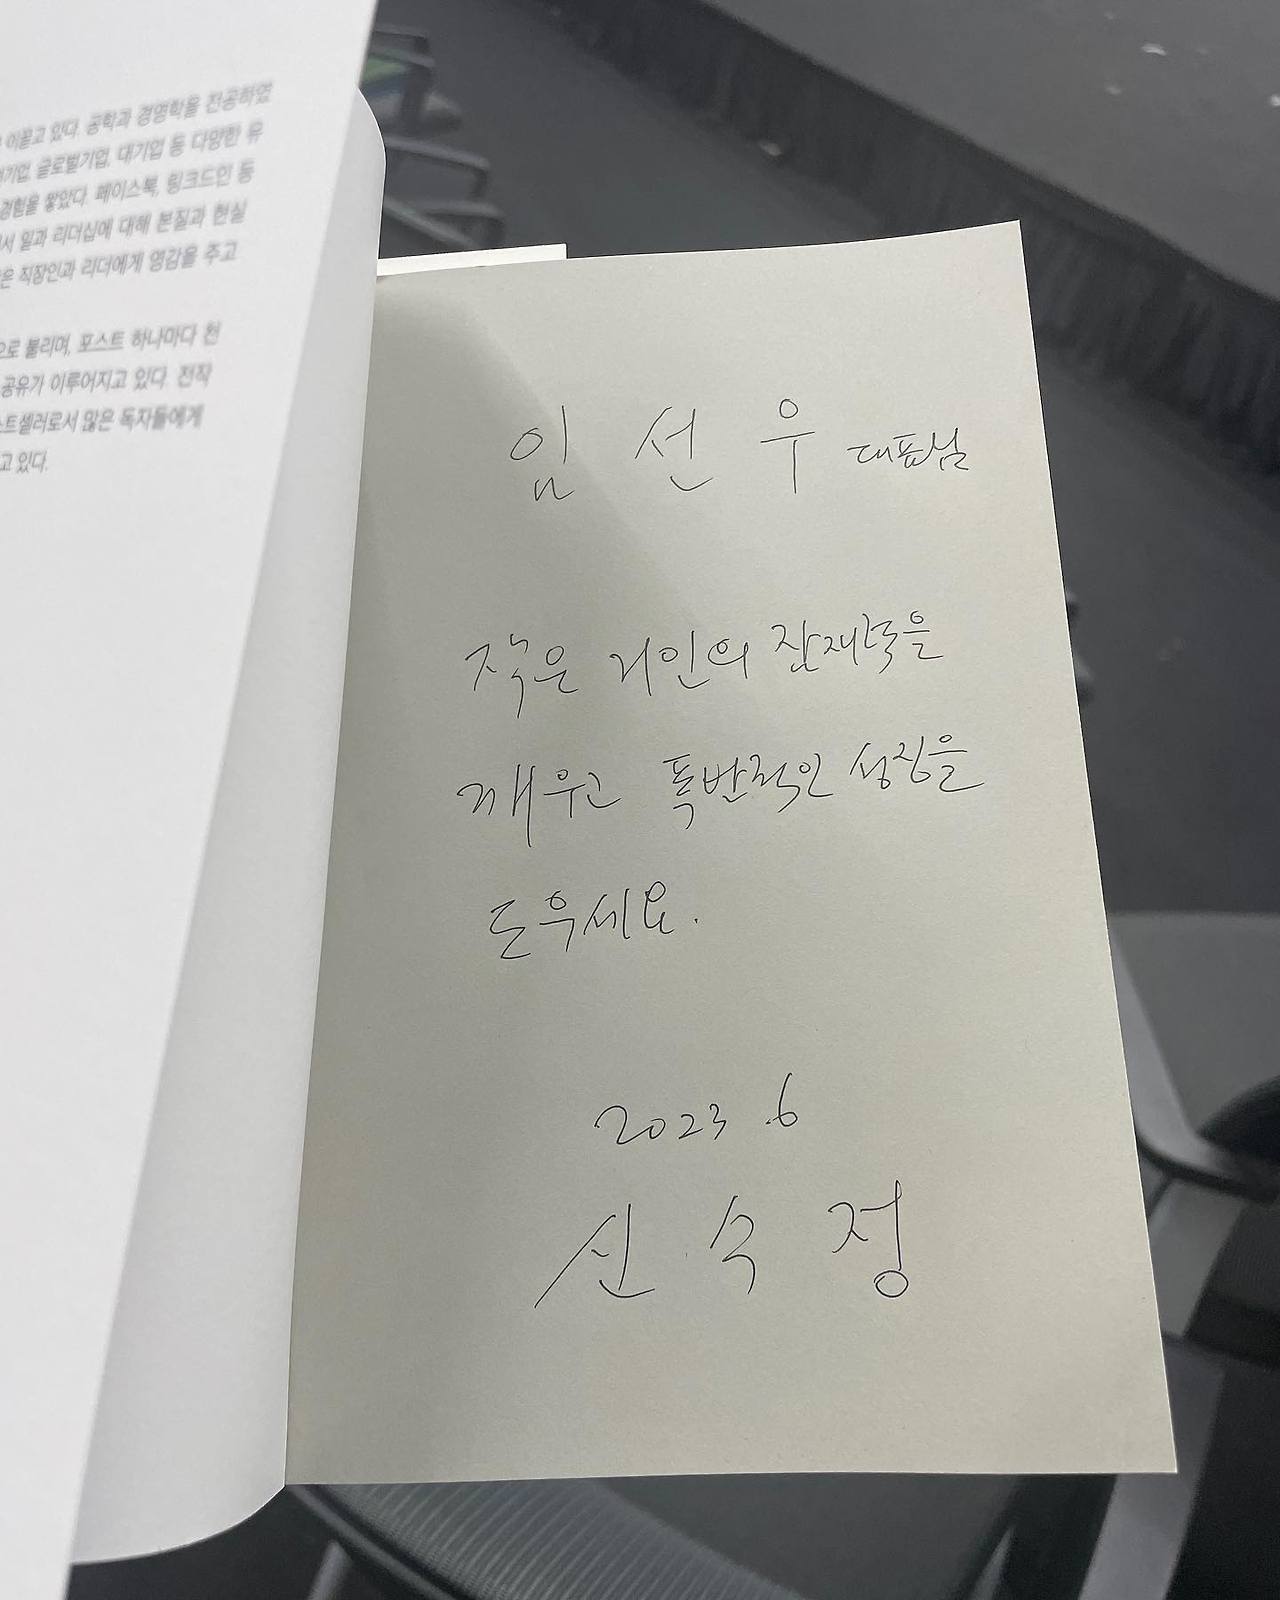 이끌고 있다. 공학과 경영학을 전공하였
글로벌기업, 대기업 등 다양한 유
경험을 쌓았다. 페이스북, 링크드인 등
서 일과 리더십에 대해 본질과 현실
은 직장인과 리더에게 영감을 주고
으로 불리며, 포스트 하나마다 천
공유가 이루어지고 있다. 전작
스트셀러로서 많은 독자들에게
고 있다.
임 선 우 대표님
작은 거인의 잠재력을
깨우고 폭발적인 성장을
도우세요.
2023 .6
신 수 정